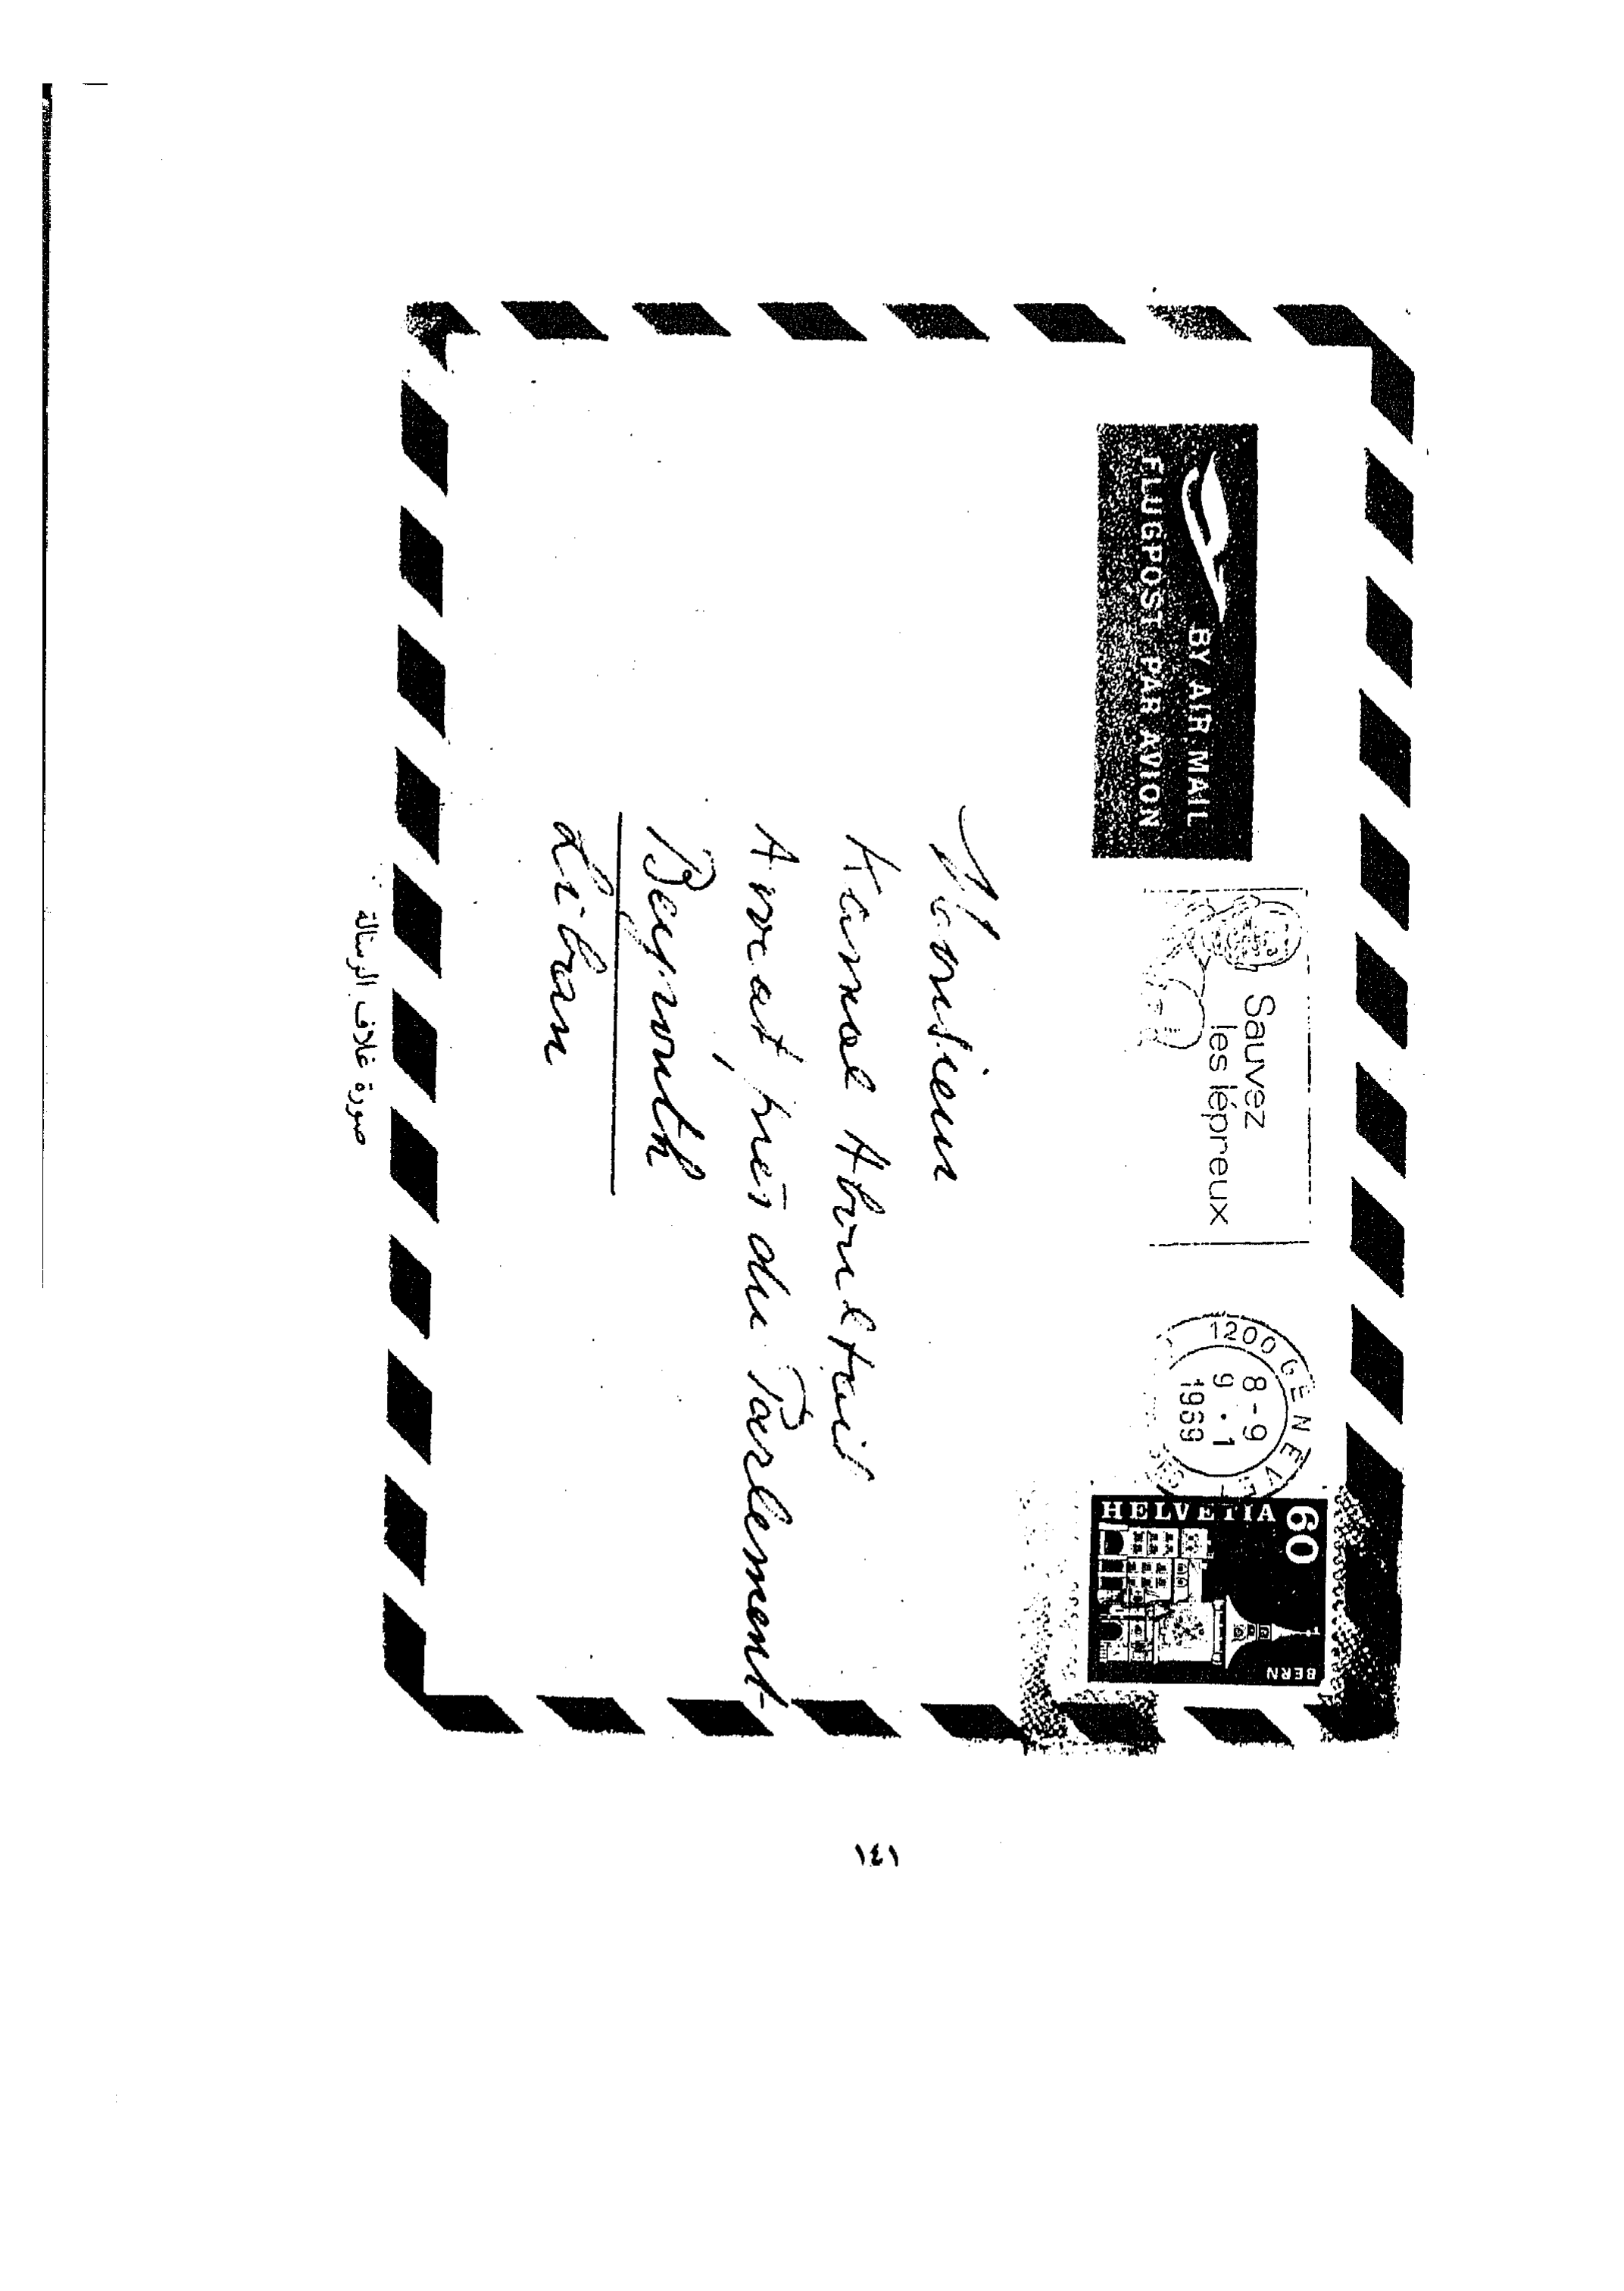 BY AIR MAIL
FLUGPOST PAR AVION
Sauvez
les lépreux
1200 GENÈVE 1
8-9
9.1
1969
60
HELVETIA
BERN
Monsieur
Kamal
Avocat, près du Parlement
Beyrouth
Liban
صورة غلاف الرسالة
١٤١